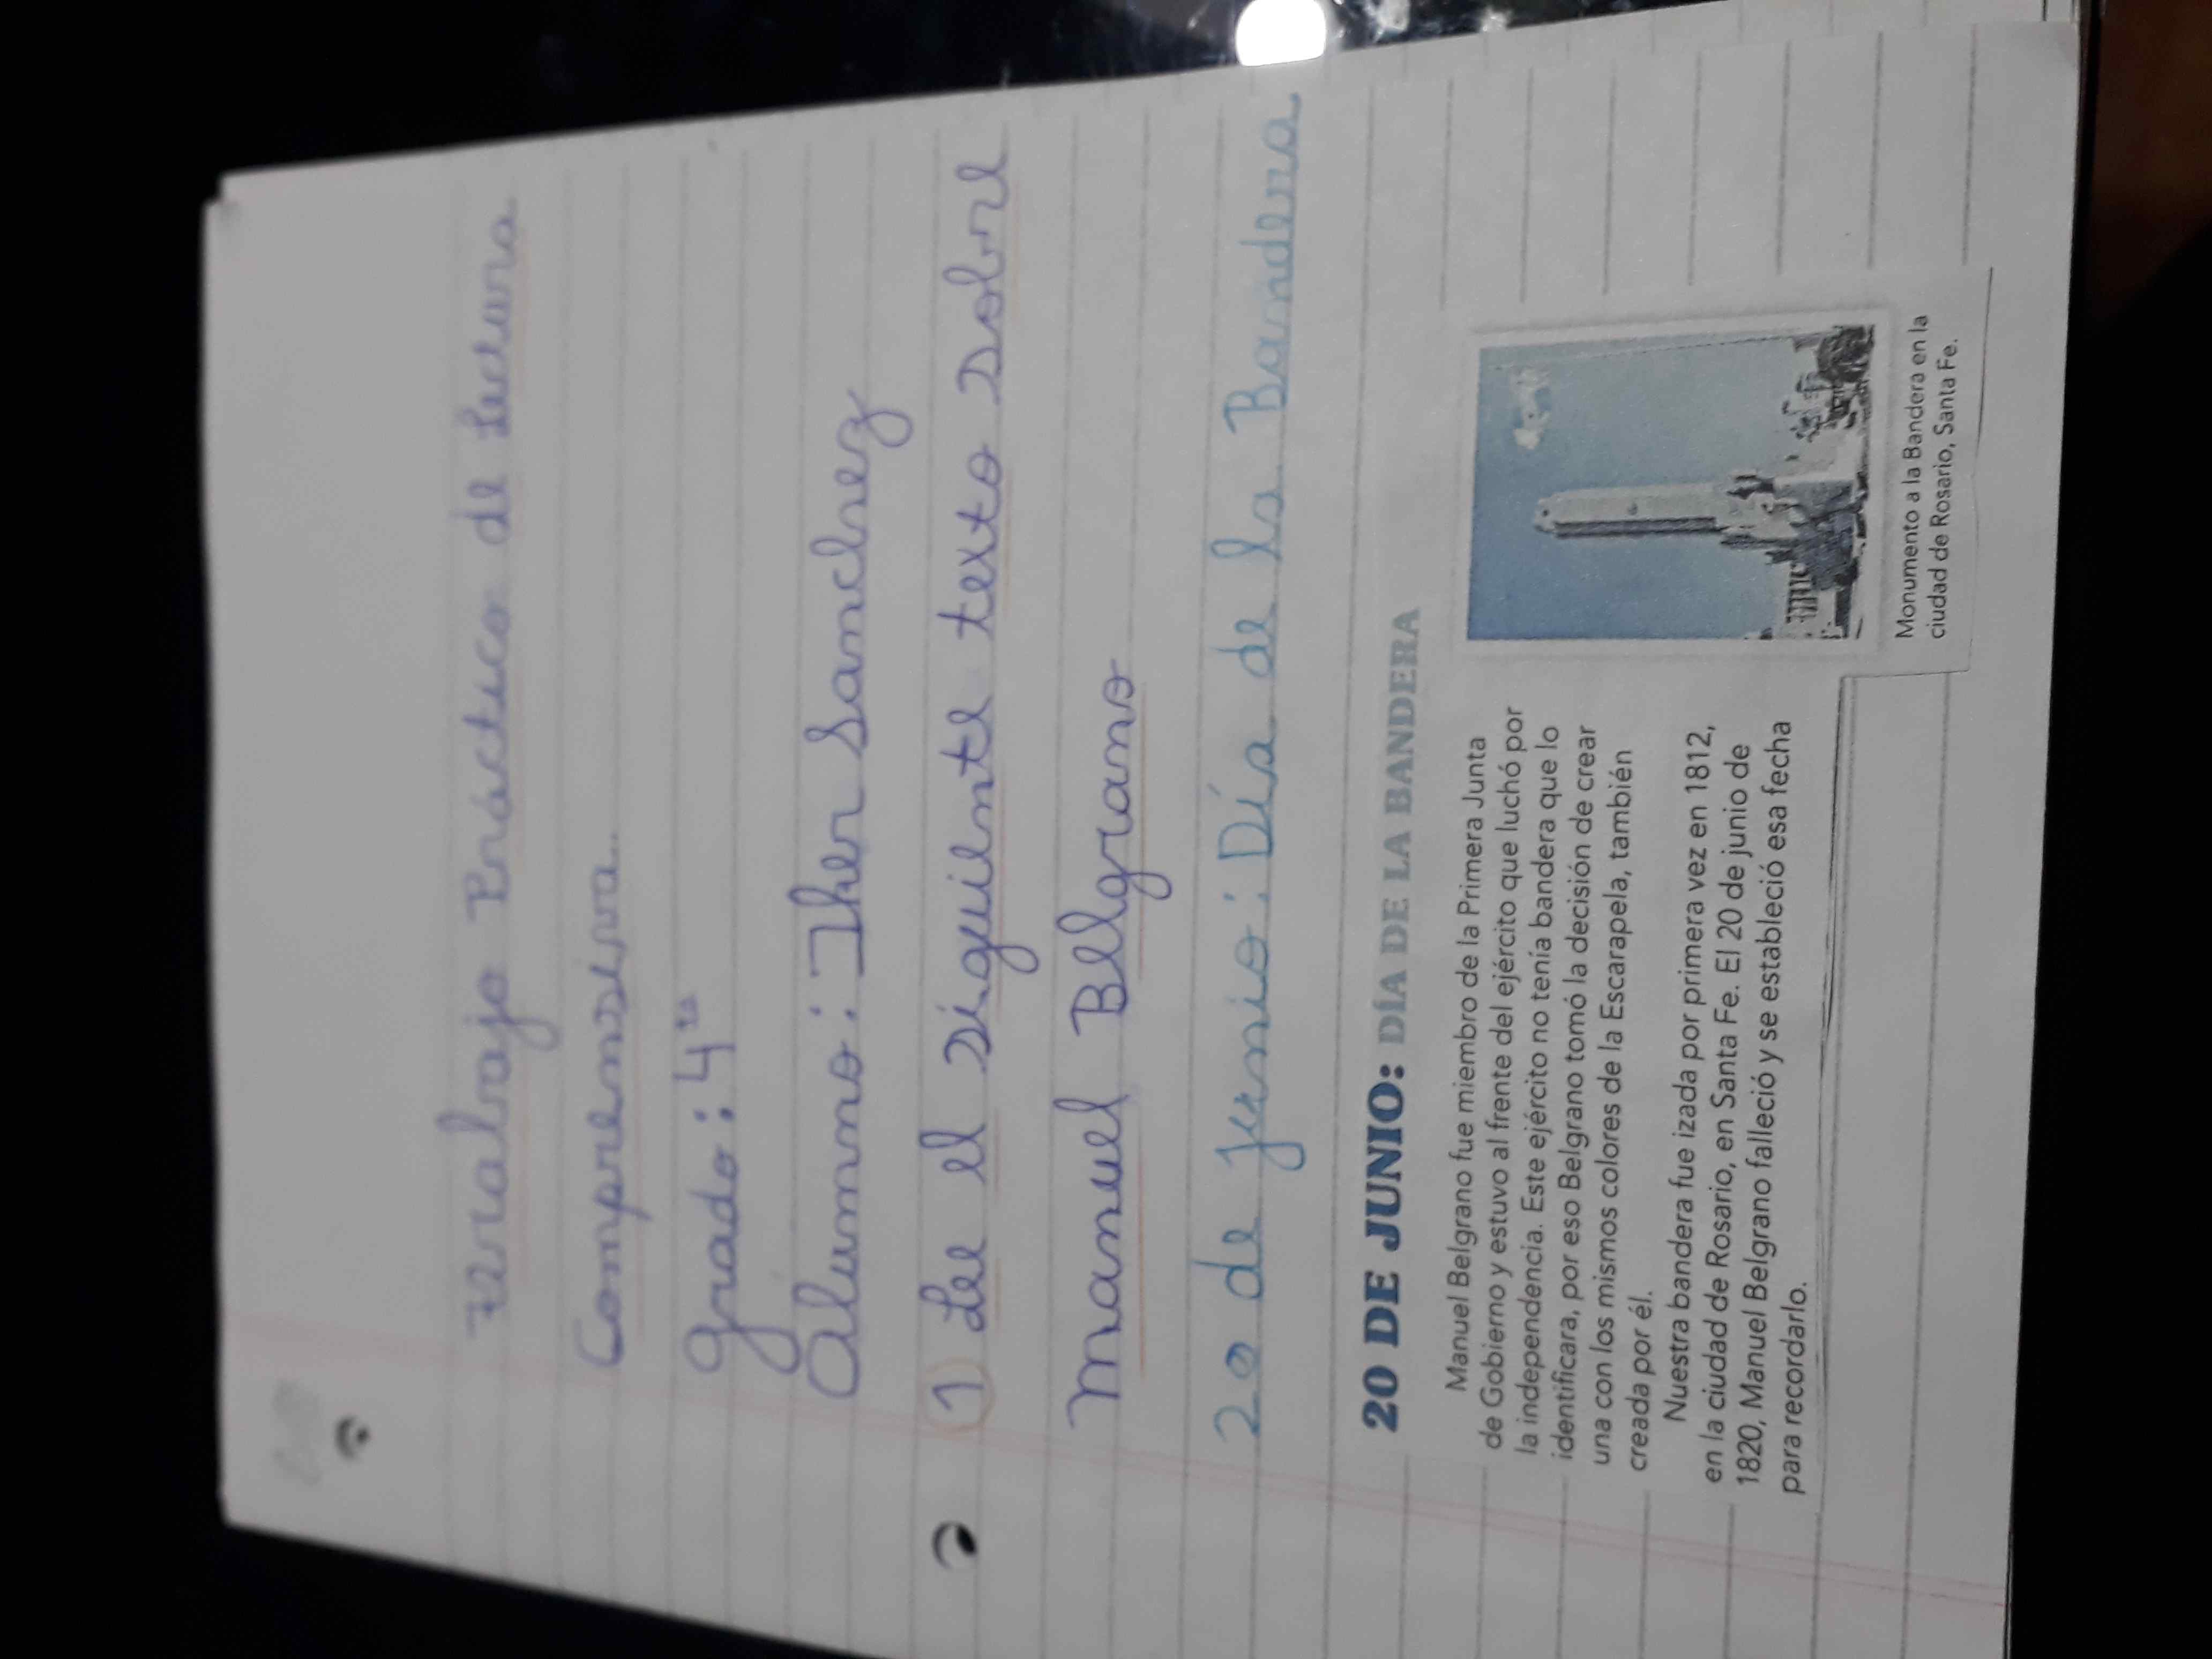 Trabajo Práctico de Lectura
Comprensiva.
Grado: 4to
Alumno: Iker Sanchez
1) Lee el siguiente texto sobre
Manuel Belgrano
20 de junio: Día de la Bandera
20 DE JUNIO: DÍA DE LA BANDERA
Manuel Belgrano fue miembro de la Primera Junta
de Gobierno y estuvo al frente del ejército que luchó por
la independencia. Este ejército no tenía bandera que lo
identificara, por eso Belgrano tomó la decisión de crear
una con los mismos colores de la Escarapela, también
creada por él.
Nuestra bandera fue izada por primera vez en 1812,
en la ciudad de Rosario, en Santa Fe. El 20 de junio de
1820, Manuel Belgrano falleció y se estableció esa fecha
para recordarlo.
Monumento a la Bandera en la
ciudad de Rosario, Santa Fe.